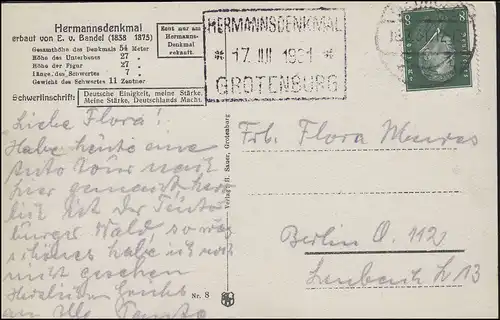 Hermannsdenkmal
erbaut von E. v. Bandel (1838 1875)
Gesamthöhe des Denkmals 54 Meter
Höhe des Unterbaus 27 "
Höhe der Figur 27 "
Länge des Schwertes 7 "
Gewicht des Schwertes 11 Zentner
Schwertinschrift: Deutsche Einigkeit, meine Stärke,
Meine Stärke, Deutschlands Macht.
Echt nur am
Hermanns-
Denkmal
zekauft.
HERMANNSDENKMAL
* 17. JUL 1931 *
GROTENBURG
8 8
Liebe Flora!
Habe heute eine
Auto tour nach
hier gemacht, herr
lich ist der Teuto
burger Wald so was
schönes habe ich noch
nicht gesehen
Herzlichen Gruß
an alle
Verlag H. Sauer, Grotenburg
Nr. 8
Frl. Flora
Berlin O. 112
13